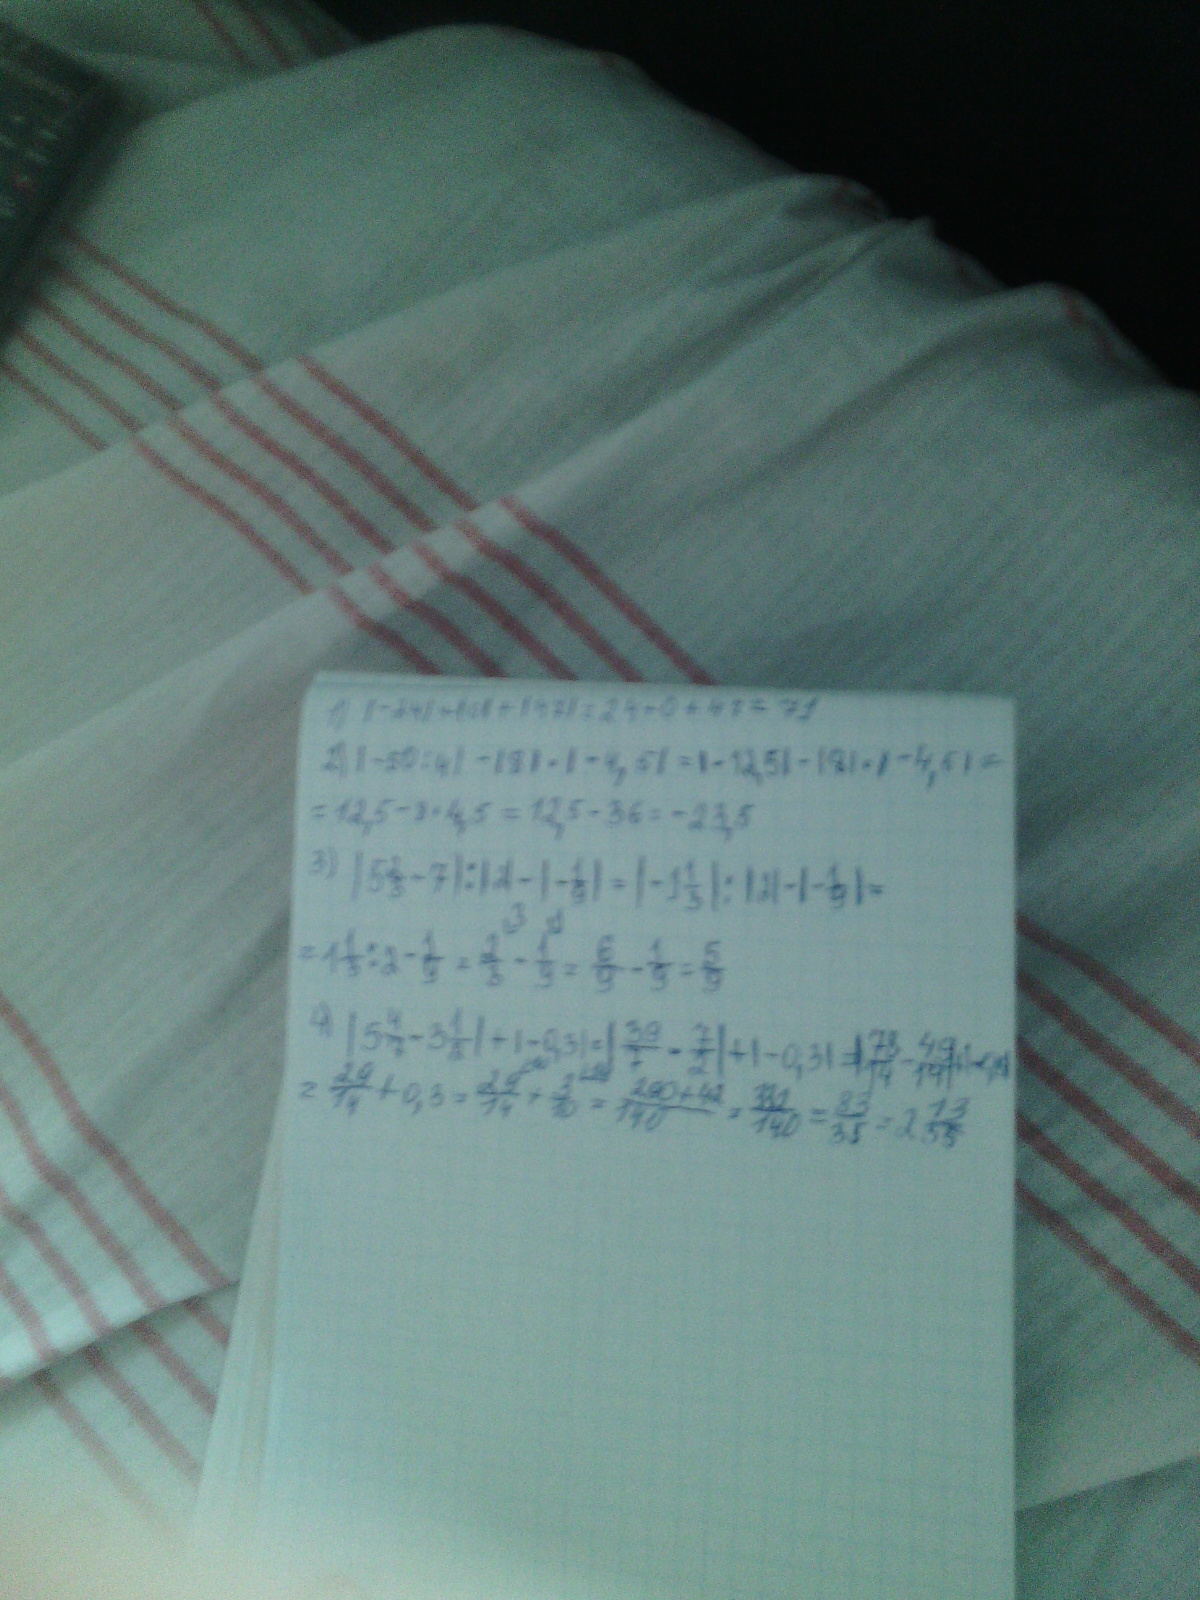 1) |-24|+|0|+|47|=24+0+47=71
2) |-50:4|-|8|·|-4,5|=|-12,5|-|8|·|-4,5|=
=12,5-8·4,5=12,5-36=-23,5
3) |5 2/3-7|:|2|-|-1/9|=|-1 1/3|:|2|-|-1/9|=
=1 1/3:2-1/9=2/3-1/9=6/9-1/9=5/9
4) |5 4/7-3 1/2|+|-0,3|=|39/7-7/2|+|-0,3|=|78/14-49/14|+|-0,3|
=29/14+0,3=29/14+3/10=290+42/140=332/140=83/35=2 13/35